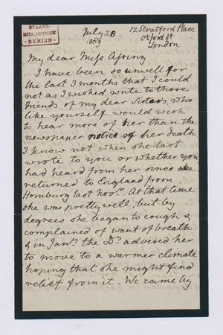 STAATS-
BIBLIOTHEK
BERLIN
July 28
12 Stratford Place
Oxford St
London
My dear Miss Assing
I have been so unwell for
the last 3 months that I could
not as I wished write to those
friends of my dear Sister's, who
like yourself would wish
to hear more of her than the
newspaper notice of her death
I know not when she last
wrote to you or whether you
had heard from her since she
returned to England from
Homburg last Novr. At that time
she was pretty well, but by
degrees she began to cough &
complained of want of breath
& in Jany. the Dr. advised her
to move to a warmer climate
hoping that she might find
relief from it. We came by